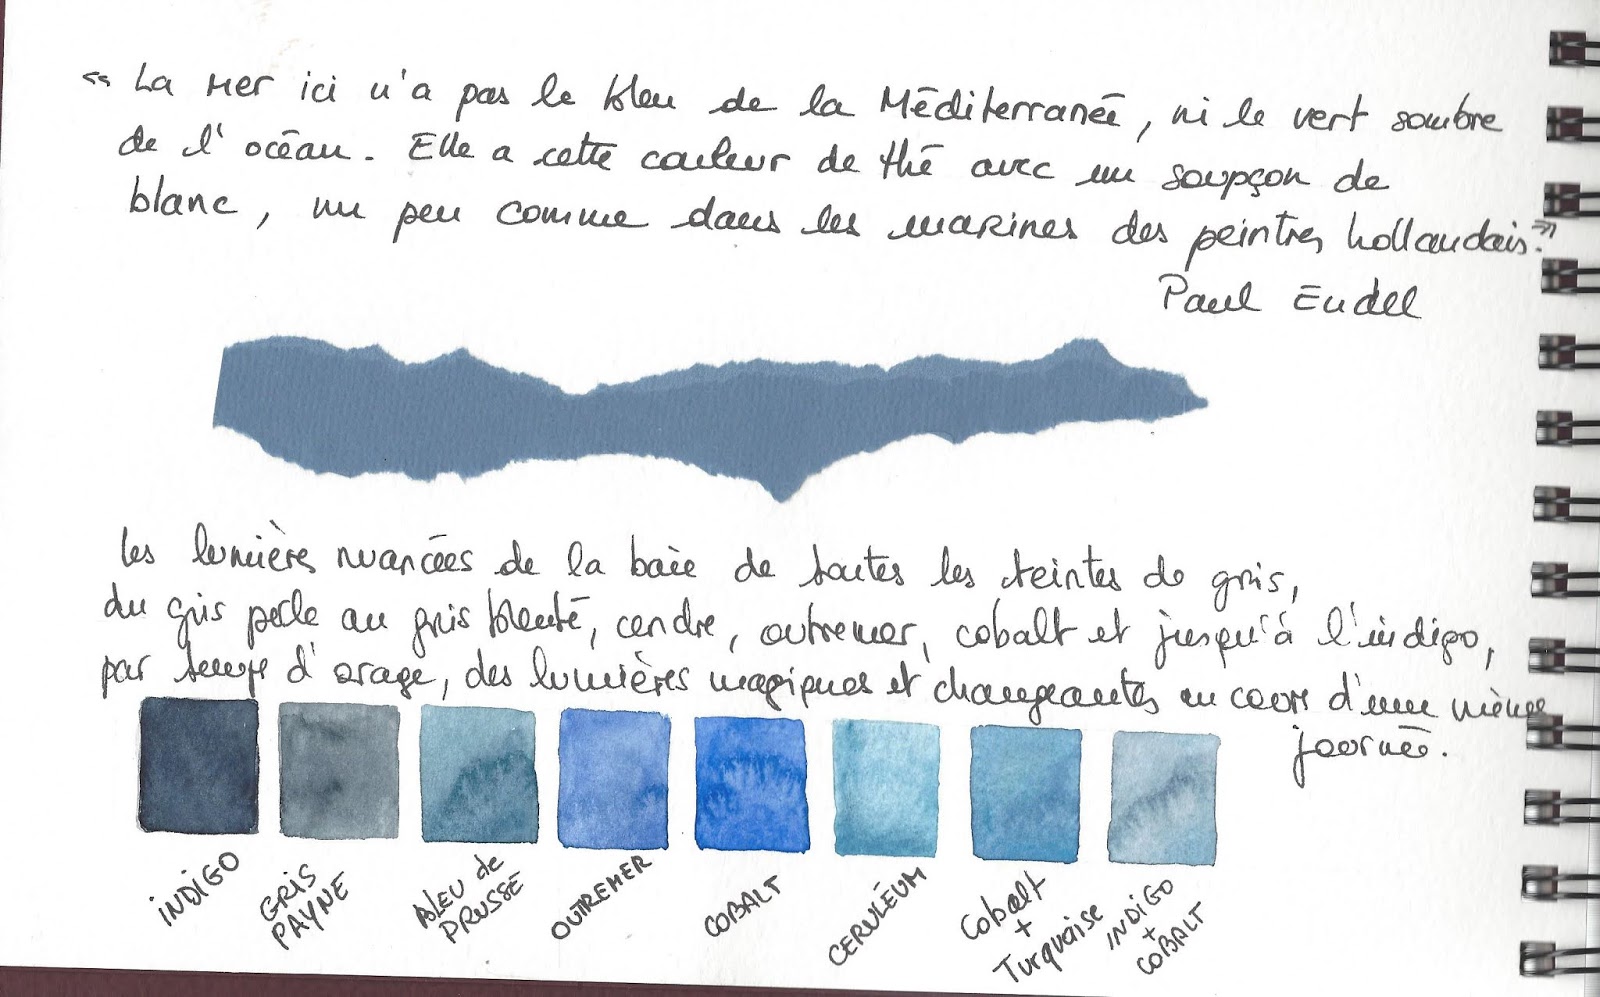 « La Mer ici n'a pas le bleu de la Méditerranée, ni le vert sombre
de l'océan. Elle a cette couleur de thé avec un soupçon de
blanc, un peu comme dans les marines des peintres hollandais. »
Paul Eudel
les lumières nuancées de la baie de toutes les teintes de gris,
du gris perle au gris bleuté, cendre, outremer, cobalt et jusqu'à l'indigo,
par temps d'orage, des lumières magiques et changeantes au cours d'une même
journée.
INDIGO
GRIS
PAYNE
BLEU de
PRUSSE
OUTREMER
COBALT
CERULÉUM
Cobalt
+
Turquoise
INDIGO
+
COBALT